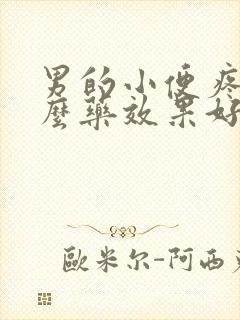 男的小便疼
麼藥效果好
歐米尔-阿西